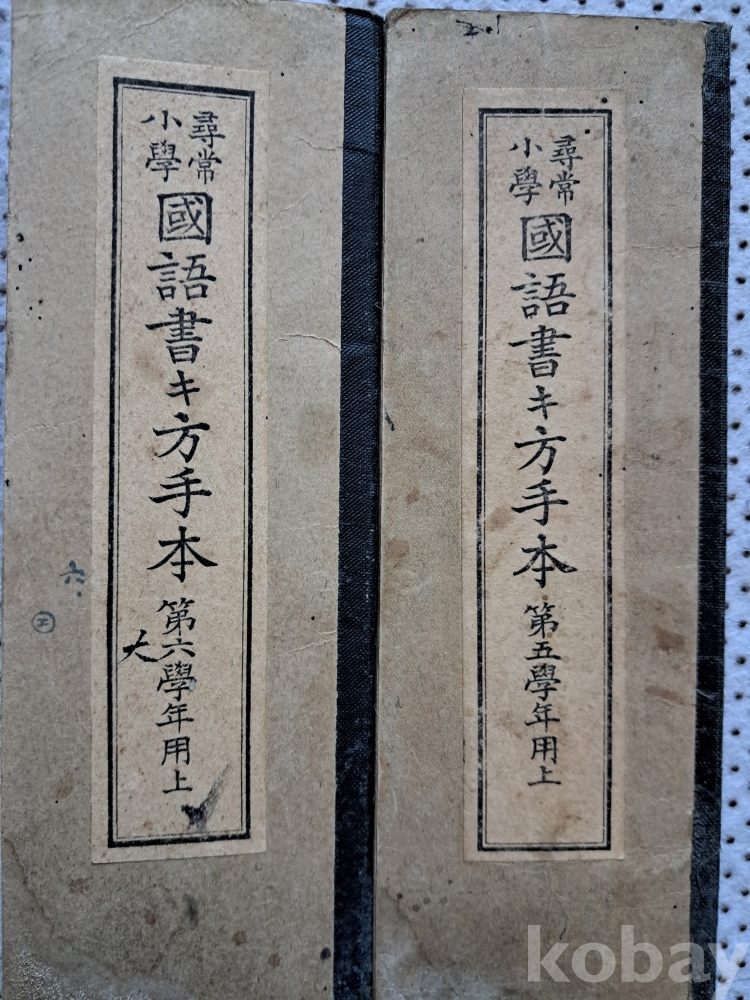 尋常小學
國語書キ方手本 第五學年用上
尋常小學
國語書キ方手本 第六學年用上
大
六
kobay